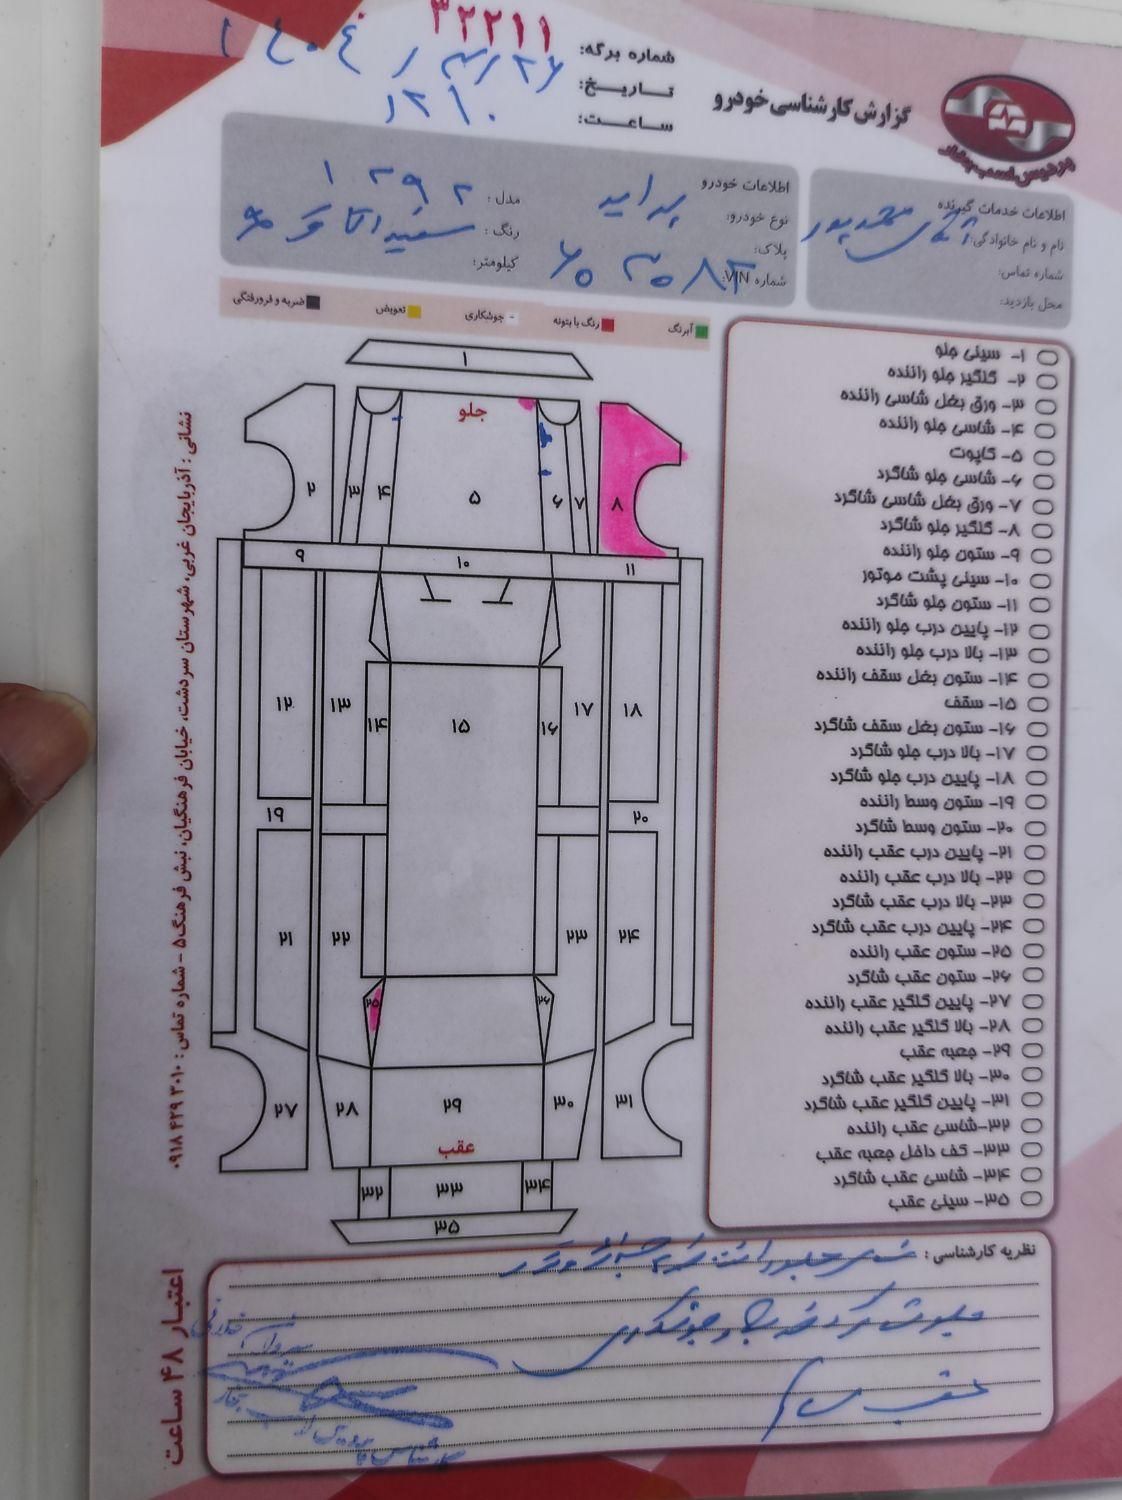 شماره برگه: ۳۲۲۱۱
تاریخ: ۱۴۰۴/۳/۲۶
ساعت: ۱۲/۱۰
گزارش کارشناسی خودرو
پردیس اسب بخار
اطلاعات خدمات گیرنده
نام و نام خانوادگی: آقای محمدپور
شماره تماس:
محل بازدید:
اطلاعات خودرو
نوع خودرو: پراید
پلاک:
شماره VIN:
مدل: ۱۳۹۲
رنگ: سفید
کیلومتر:
آبرنگ
رنگ با بتونه
- جوشکاری
تعویض
ضربه و فرورفتگی
۱- سینی جلو
۲- گلگیر جلو راننده
۳- ورق بغل شاسی راننده
۴- شاسی جلو راننده
۵- کاپوت
۶- شاسی جلو شاگرد
۷- ورق بغل شاسی شاگرد
۸- گلگیر جلو شاگرد
۹- ستون جلو راننده
۱۰- سینی پشت موتور
۱۱- ستون جلو شاگرد
۱۲- پایین درب جلو راننده
۱۳- بالا درب جلو راننده
۱۴- ستون بغل سقف راننده
۱۵- سقف
۱۶- ستون بغل سقف شاگرد
۱۷- بالا درب جلو شاگرد
۱۸- پایین درب جلو شاگرد
۱۹- ستون وسط راننده
۲۰- ستون وسط شاگرد
۲۱- پایین درب عقب راننده
۲۲- بالا درب عقب راننده
۲۳- بالا درب عقب شاگرد
۲۴- پایین درب عقب شاگرد
۲۵- ستون عقب راننده
۲۶- ستون عقب شاگرد
۲۷- پایین گلگیر عقب راننده
۲۸- بالا گلگیر عقب راننده
۲۹- جعبه عقب
۳۰- بالا گلگیر عقب شاگرد
۳۱- پایین گلگیر عقب شاگرد
۳۲- شاسی عقب راننده
۳۳- کف داخل جعبه عقب
۳۴- شاسی عقب شاگرد
۳۵- سینی عقب
۱
جلو
۲ ۳ ۴ ۵ ۶ ۷ ۸
۹ ۱۰ ۱۱
۱۲ ۱۳ ۱۴ ۱۵ ۱۶ ۱۷ ۱۸
۱۹ ۲۰
۲۱ ۲۲ ۲۳ ۲۴
۲۵ ۲۶
۲۷ ۲۸ ۲۹ ۳۰ ۳۱
عقب
۳۲ ۳۳ ۳۴
۳۵
نشانی: آذربایجان غربی، شهرستان سردشت، خیابان فرهنگیان، نبش فرهنگ ۵ - شماره تماس: ۳۰۱۰ ۴۲۹ ۰۹۱۸
اعتبار ۴۸ ساعت
نظریه کارشناسی: شاسی جلو راننده
جلو شاگرد ضربه و جوشکاری
عقب سالم